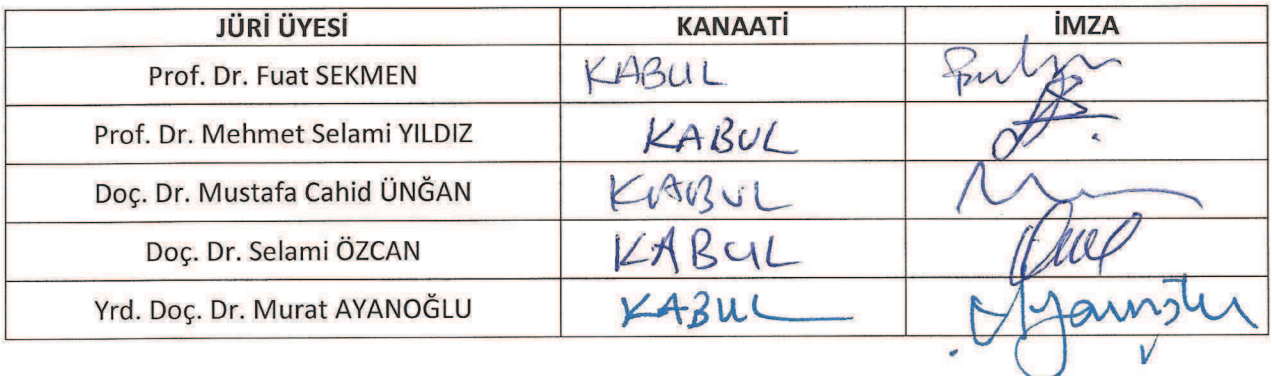 JÜRİ ÜYESİ KANAATİ İMZA
Prof. Dr. Fuat SEKMEN KABUL
Prof. Dr. Mehmet Selami YILDIZ KABUL
Doç. Dr. Mustafa Cahid ÜNĞAN KABUL
Doç. Dr. Selami ÖZCAN KABUL
Yrd. Doç. Dr. Murat AYANOĞLU KABUL